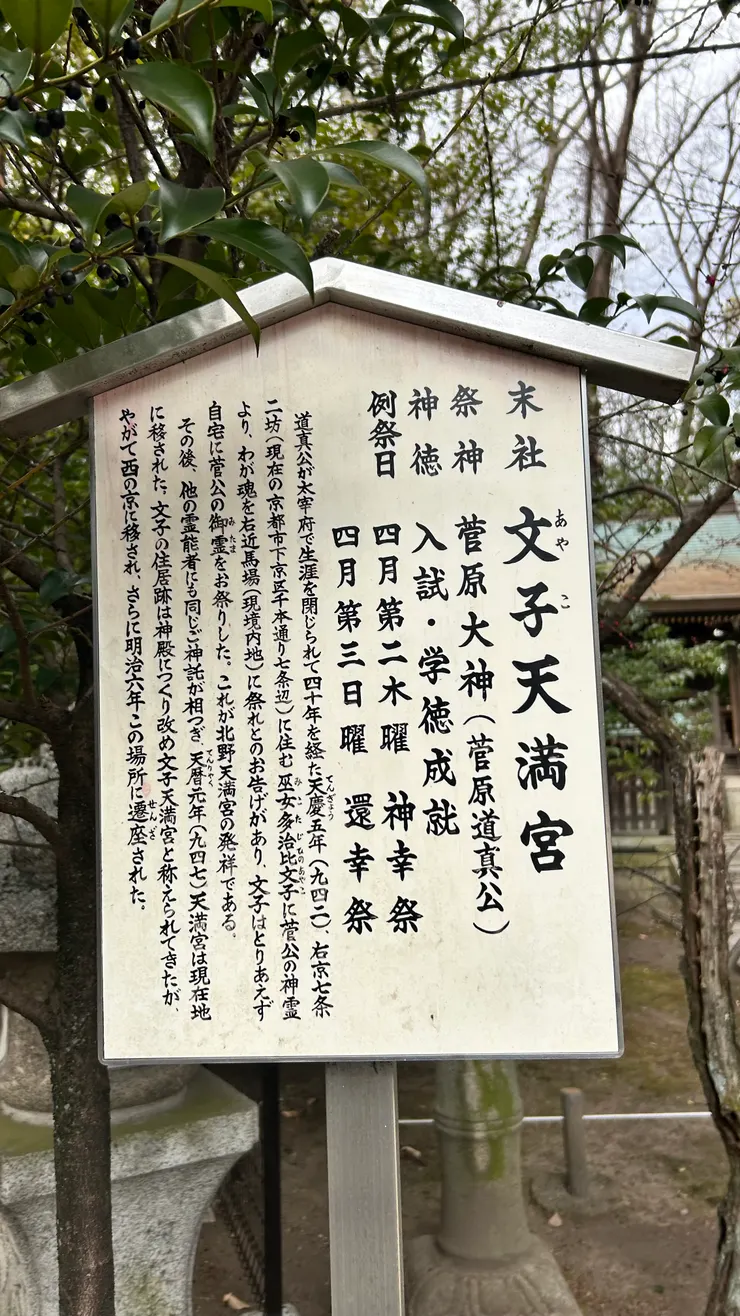 末社　文子天満宮
あやこ
祭神　菅原大神（菅原道真公）
神徳　入試・学徳成就
例祭日　四月第二木曜　神幸祭
四月第三日曜　還幸祭
道真公が太宰府で生涯を閉じられて四十年を経た天慶五年（九四二）、右京七条
てんぎょう
二坊（現在の京都市下京区千本通り七条辺）に住む巫女多治比文子に菅公の神霊
みこたじひのあやこ
より、わが魂を右近馬場（現境内地）に祭れとのお告げがあり、文子はとりあえず
自宅に菅公の御霊をお祭りした。これが北野天満宮の発祥である。
みたま
その後、他の霊能者にも同じご神託が相つぎ、天暦元年（九四七）天満宮は現在地
てんりゃく
に移された。文子の住居跡は神殿につくり改め文子天満宮と称えられてきたが、
やがて西の京に移され、さらに明治六年この場所に遷座された。
せんざ